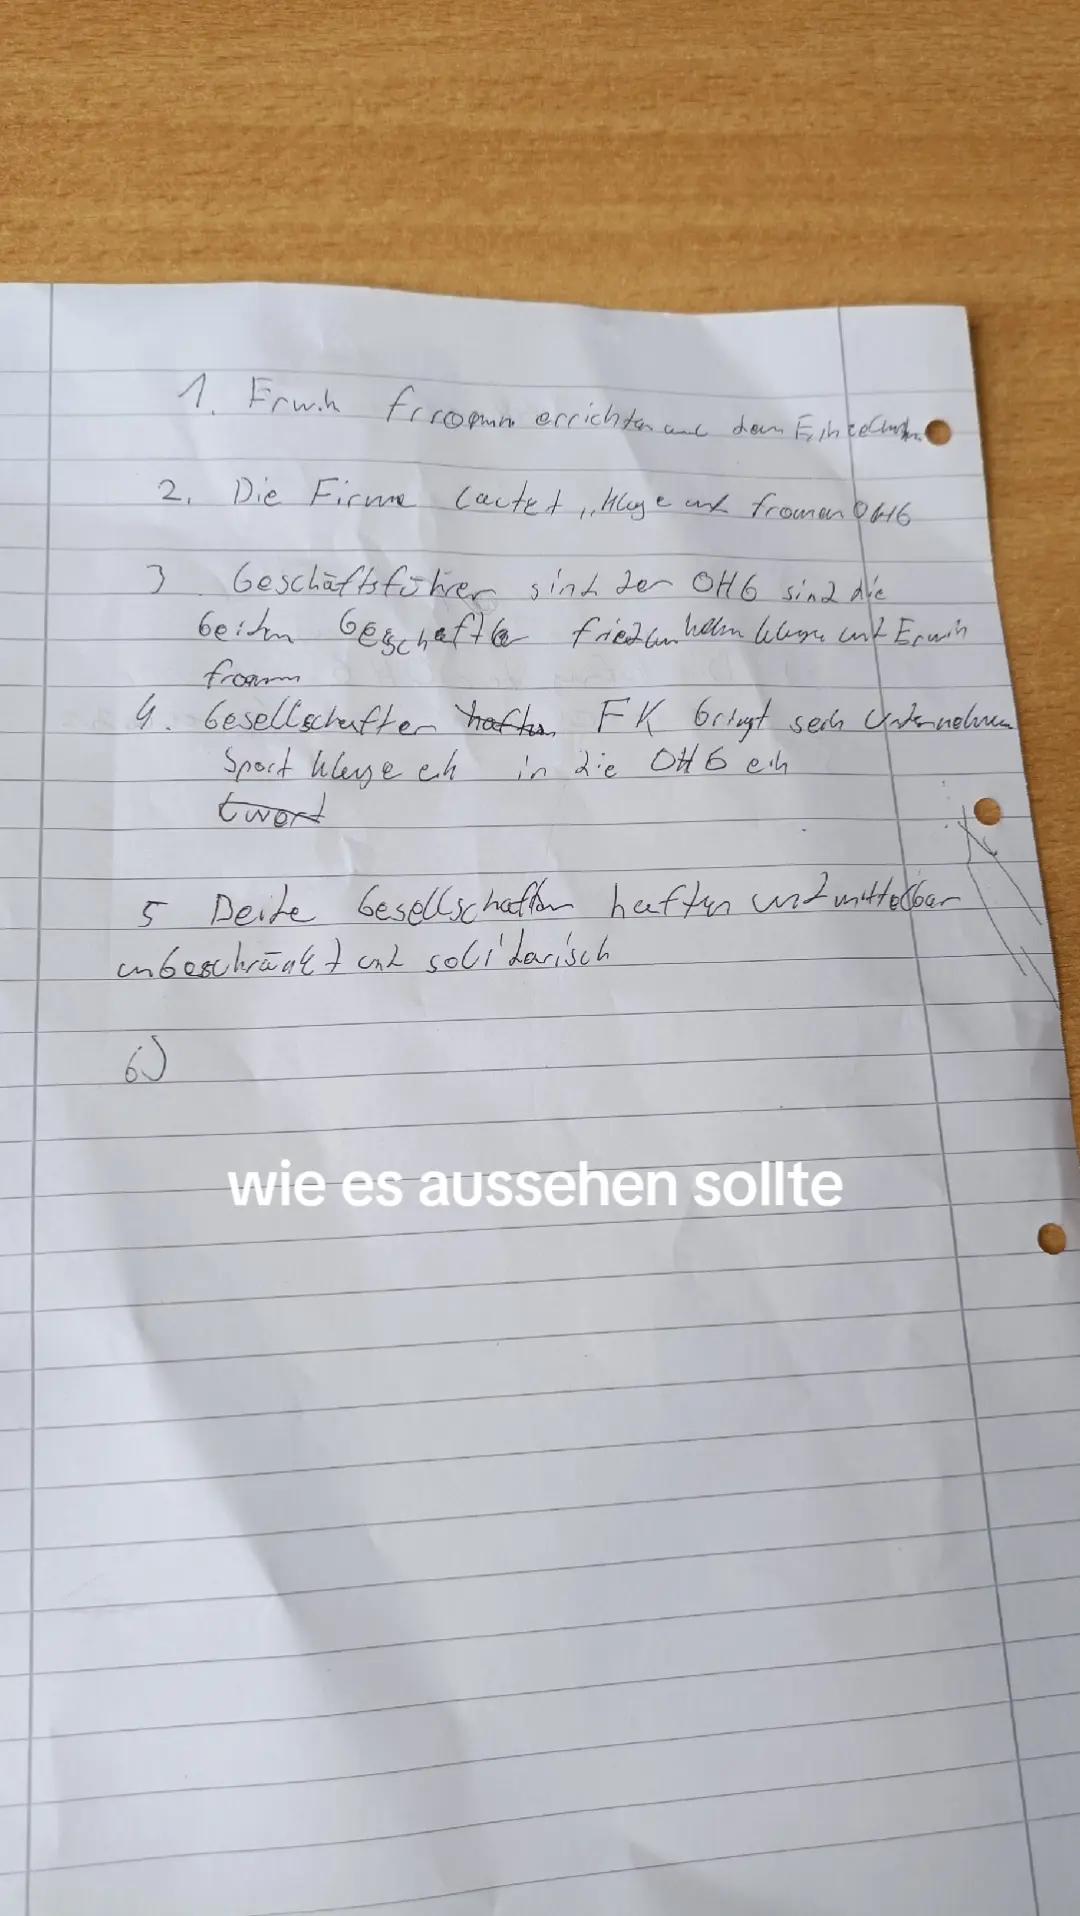 1. Erwin fromm errichten aus dem
2. Die Firma lautet „Kluge und fromm OHG
3. Geschäftsführer sind der OHG sind die
beiden friedenhelm kluge und Erwin
fromm
4. Gesellschafter haften FK bringt sein Unternehmen
Sport kluge ein in die OHG ein
5 Beide Gesellschafter haften unmittelbar
unbeschränkt und solidarisch
6)
wie es aussehen sollte